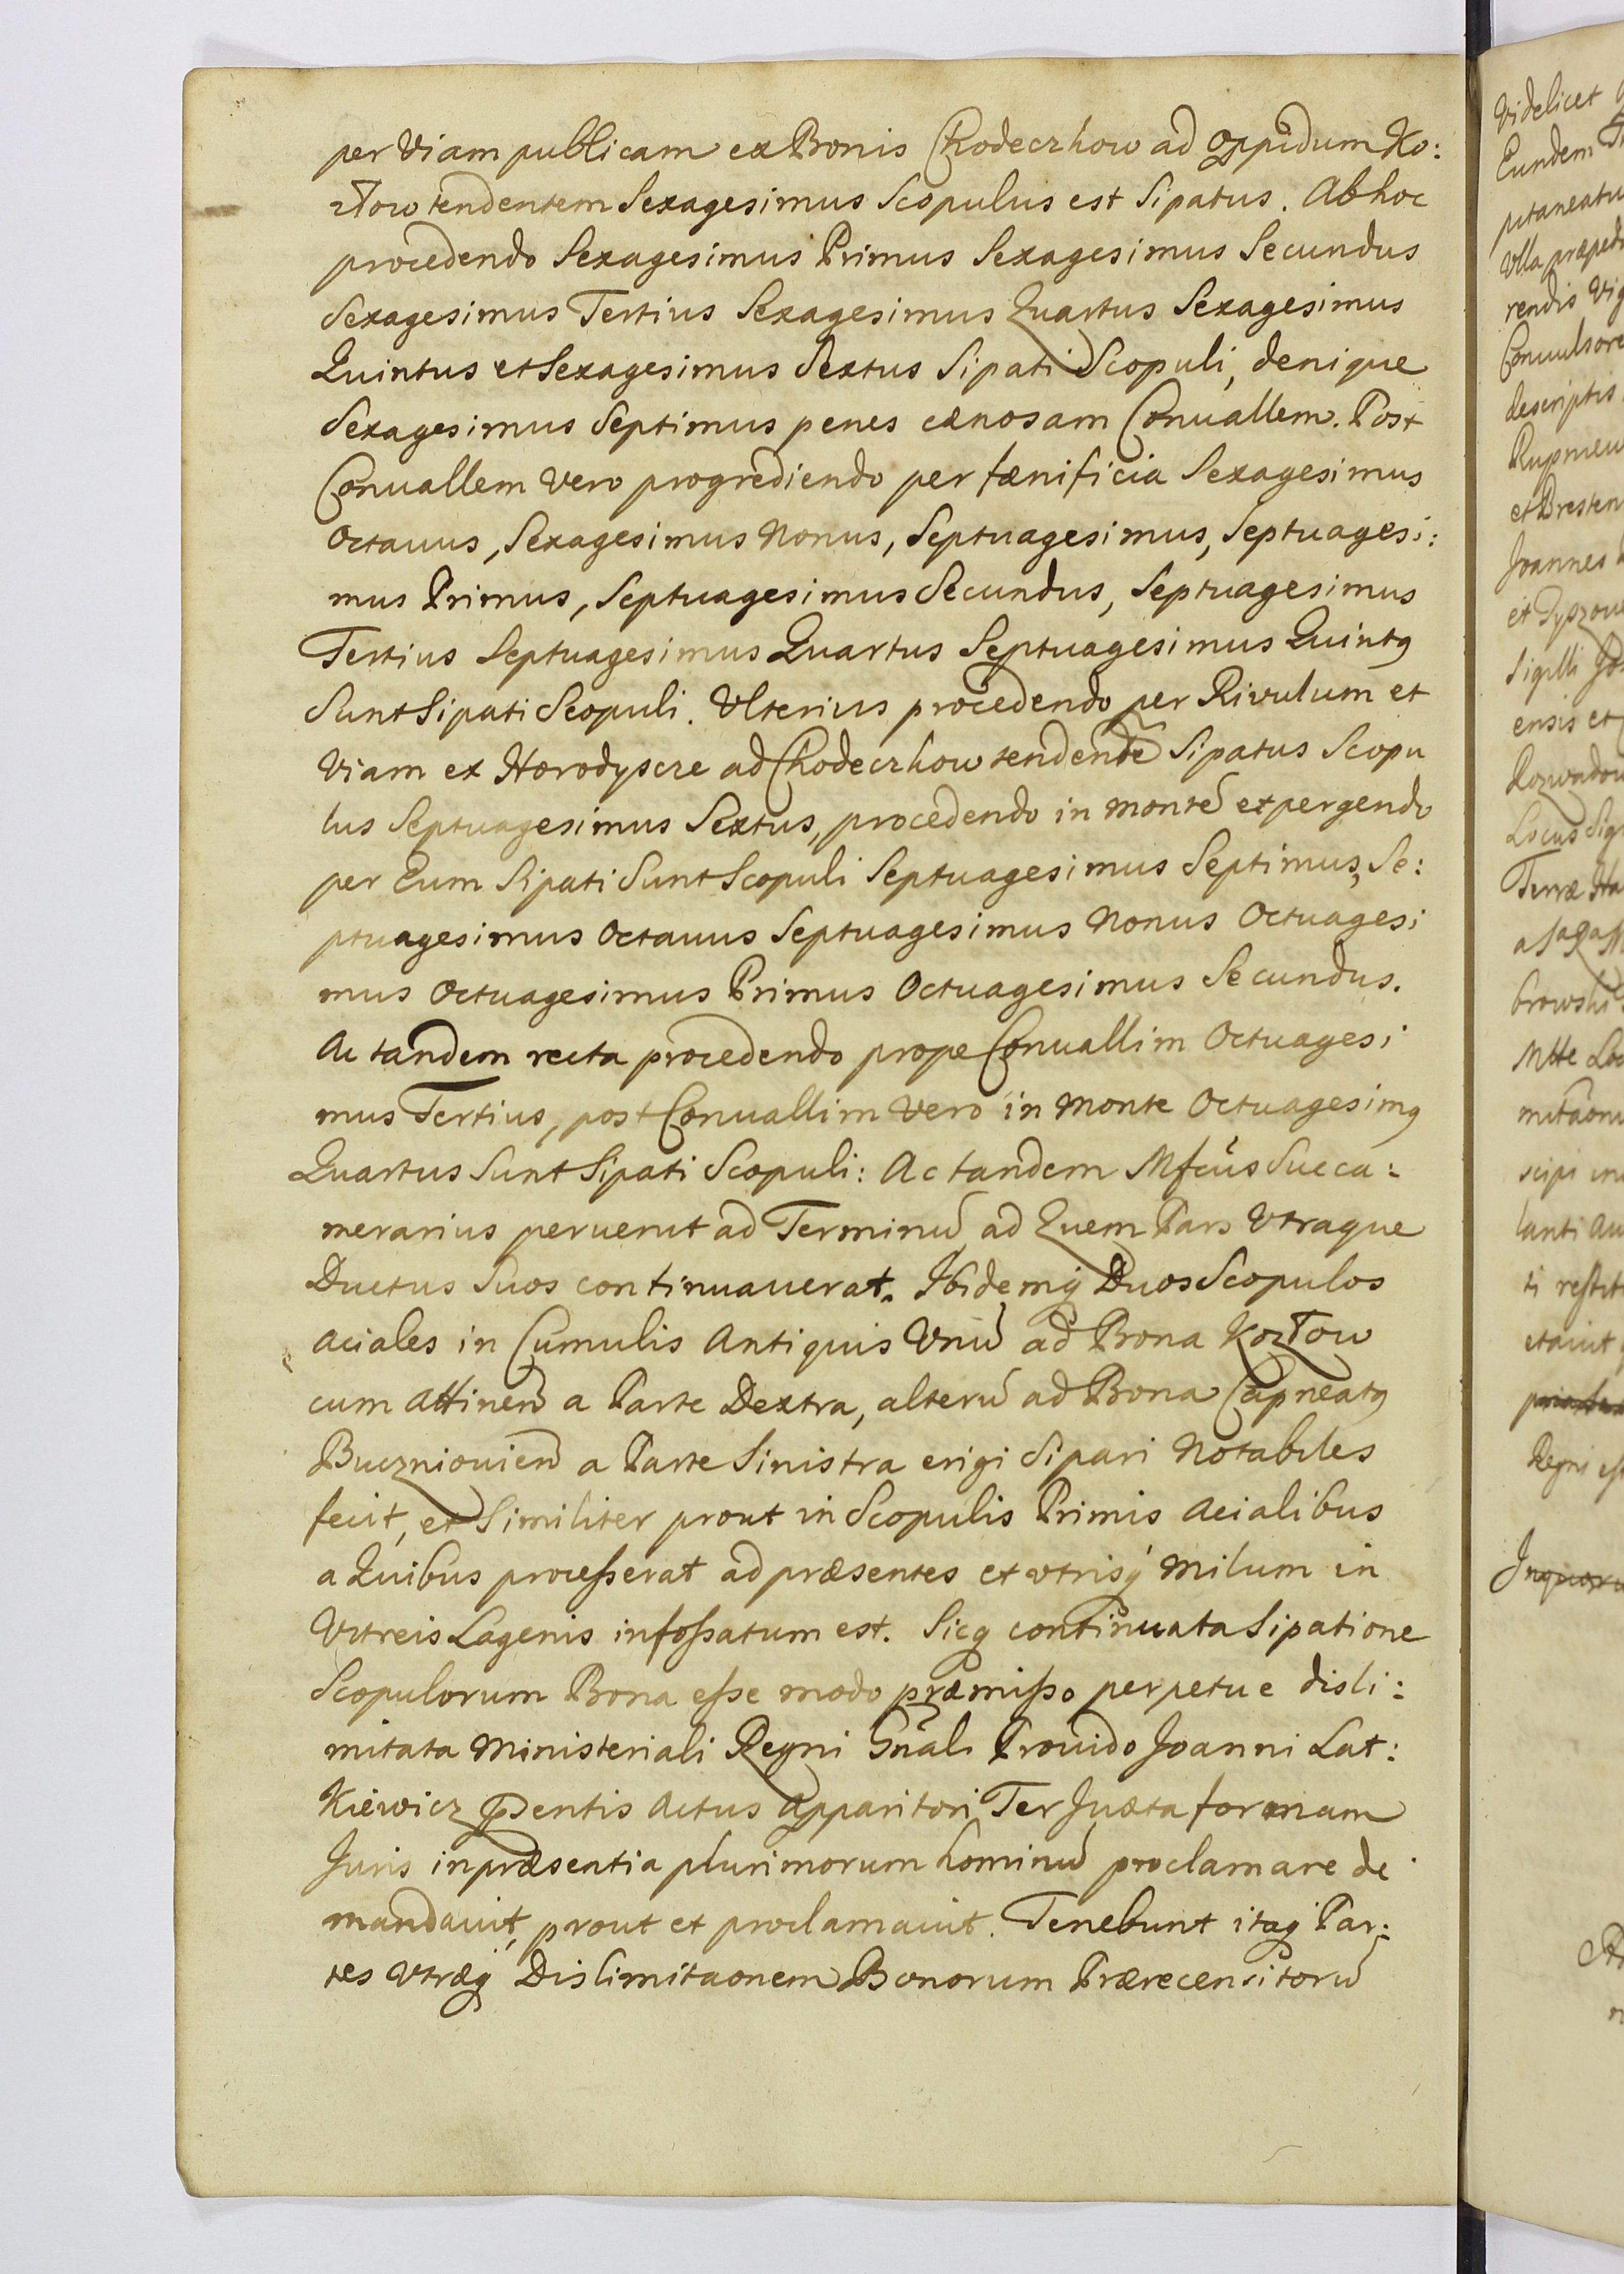 per Viam publicam ex Bonis Chodeczkow ad oppidum Ko:
złow tendentem Sexagesimus Scopulus est Sipatus. Ab hoc
procedendo Sexagesimus Primus Sexagesimus Secundus
Sexagesimus Tertius Sexagesimus Quartus Sexagesimus
Quintus et Sexagesimus Sextus Sipati Scopuli, denique
Sexagesimus Septimus penes cænosam Conuallem. Post
Conuallem Vero progrediendo per fænificia Sexagesimus
Octauus, Sexagesimus Nonus, Septuagesimus, Septuagesi:
mus Primus, Septuagesimus Secundus, Septuagesimus
Tertius Septuagesimus Quartus Septuagesimus Quintꝯ
Sunt Sipati Scopuli. Vlterius procedendo per Rivulum et
Viam ex Horodyscze ad Chodeczkow tendentẽ Sipatus Scopu
lus Septuagesimus Sextus, procedendo in montẽ et pergendo
per Eum Sipati Sunt Scopuli Septuagesimus Septimus, Se:
ptuagesimus Octauus Septuagesimus Nonus Octuagesi
mus Octuagesimus Primus Octuagesimus Secundus.
Ac tandem recta procedendo prope Conuallim Octuagesi
mus Tertius, post Conuallim Vero in Monte Octuagesimꝯ
Quartus Sunt Sipati Scopuli: Ac tandem Mfcus Succa:
merarius peruenit ad Terminũ ad Quem Pars Vtraque
Ductus Suos continuauerat. Ibidemq́ Duos Scopulos
Aciales in Cumulis Antiquis Vnũ ad Bona Kozłow
cum Attineñ a Parte Dextra, alterũ ad Bona Capneatꝯ
Buczniouieñ a Parte Sinistra erigi Sipari Notabiles
fecit, et Similiter prout in Scopulis Primis Acialibus
a Quibus processerat ad præsentes et vtrisq́ Milum in
Vitreis Lagenis infossatum est. Sicq continuata Sipatione
Scopulorum Bona esse modo præmisso perpetue disli:
mitata Ministeriali Regni Gnãli Prouido Joanni Lat:
Kiewicz p̃sentis Actus Apparitori Ter Juxta formam
Juris in præsentia plurimorum hominũ proclamare de
mandauit, prout et proclamauit. Tenebunt itaq́ Par:
tes Vtræq́ Dislimitaonem Bonorum Prærecensitorũ
Videlicet
Eundem
Vlla
rendis
descriptis
Joannes
Sigilli
ensis et
Locus
Terræ
Regni